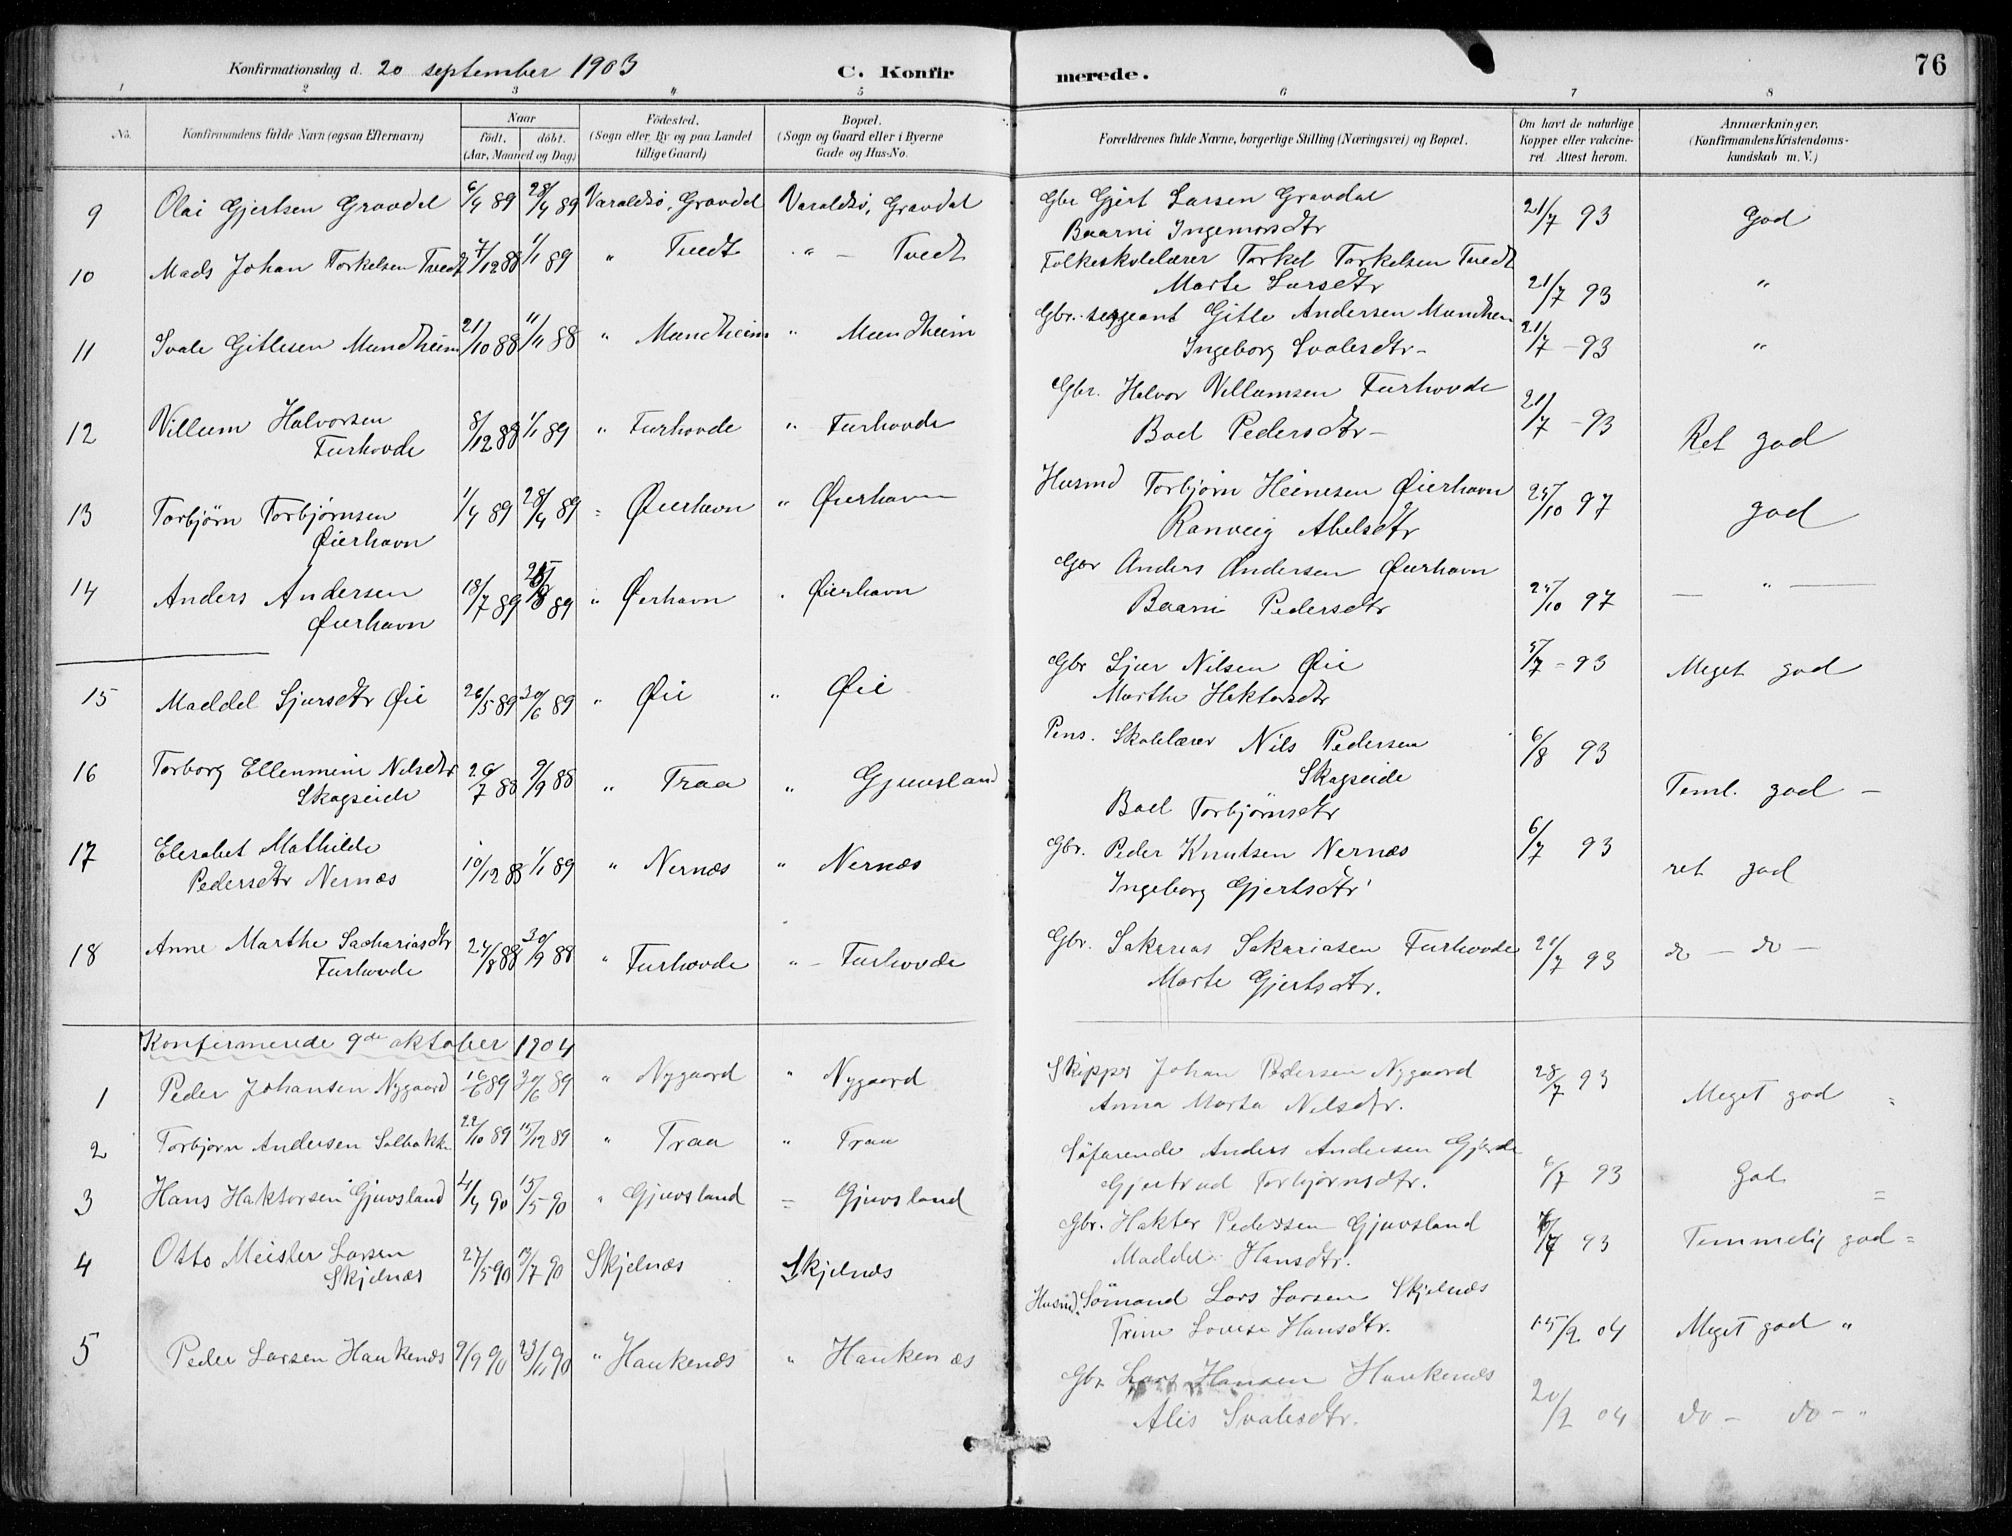 Konfirmationsdag d. 20 september 1903 C. Konfirmerede. 76
1 2 3 4 5 6 7 8
No. Konfirmandens fulde Navn (ogsaa Efternavn) Naar født. døbt. (Aar, Maaned og Dag) Fødested. (Sogn eller By og paa Landet tillige Gaard) Bopæl. (Sogn og Gaard eller i Byerne Gade og Hus-No. Forældrenes fulde Navne, borgerlige Stilling (Næringsvei) og Bopæl. Om havt de naturlige Kopper eller vakcineret. Attest herom. Anmærkninger. (Konfirmandens Kristendomskundskab m. V.)
9 Olai Gjertsen Gravdal 6/4 89 28/4 89 Varaldsø, Gravdal Varaldsø, Gravdal Gbr Gjert Larsen Gravdal 21/7 93 God
Baarni Ingemorsdtr
10 Mads Johan Torkelsen Tvedt 27/12 88 1/1 89 " Tvedt " – Tvedt Folkeskolelærer Torkel Torkelsen Tvedt 21/7 93 "
Marte Larsdtr
11 Svale Gitlesen Mundheim 21/10 88 11/11 88 " Mundheim " Mundheim Gbr. sergeant Gitle Andersen Mundhem 21/7 – 93 "
Ingeborg Svalesdtr –
12 Villum Halvorsen 8/12 88 1/1 89 " Furhovde " Furhovde Gbr. Halvor Villumsen Furhovde 21/7 – 93 Ret god
Furhovde Boel Pedersdtr –
13 Torbjørn Torbjørnsen 1/4 89 28/4 89 " Øierhavn " Øierhavn Husmd Torbjørn Heinesen Øierhavn 25/10 97 god
Øierhavn Ranveig Abelsdtr
14 Anders Andersen 18/7 89 25/8 89 " Øierhavn " Øierhavn Gbr Anders Andersen Øierhavn 25/10 97 — " —
Øierhavn Baarni Pedersdtr
15 Maddel Sjursdtr Øie 26/5 89 30/6 89 " Øie " Øie Gbr Sjur Nilsen Øie 5/7 – 93 Meget god
Marthe Haktorsdtr
16 Torborg Ellenmine Nilsdtr 26/7 88 9/9 88 " Traa " Gjuvsland Pens. Skolelærer Nils Pedersen 6/8 93 Teml. god –
Skogseide Skogseide
Boel Torbjørnsdtr
17 Elesabet Mathilde 10/12 88 1/1 89 " Nernæs " Nernæs Gbr. Peder Knutsen Nernæs 6/7 93 ret god
Pedersdtr Nernæs Ingeborg Gjertsdtr
18 Anne Marthe Sachariasdtr 24/8 88 30/9 88 " Furhovde " – Furhovde Gbr. Sakarias Sakariasen Furhovde 21/7 93 do – do –
Furhovde Marte Gjertsdtr.
Konfirmerede 9de oktober 1904
1 Peder Johansen Nygaard 16/6 89 30/6 89 " Nygaard " Nygaard Skipper Johan Pedersen Nygaard 28/7 93 Meget god "
Anna Marta Nilsdtr.
2 Torbjørn Andersen Solbakk. 22/10 89 15/12 89 " Traa " Traa Søfarende Anders Andersen Gjerde 6/7 93 God =
Gjertrud Torbjørnsdtr.
3 Hans Haktorsen Gjuvsland 4/4 90 15/5 90 " Gjuvsland = Gjuvsland Gbr. Haktor Pedersen Gjuvsland 6/7 93 Temmelig god =
Maddel Hansdtr.
4 Otto Meister Larsen 27/5 90 13/7 90 Skjelnæs Skjelnæs Husmd. Sømand Lars Larsen Skjelnæs 15/2 04 Meget god "
Skjelnæs Trine Lovise Hansdtr.
5 Peder Larsen Haukenæs 9/9 90 23/11 90 " Haukenæs " Haukenæs Gbr. Lars Hansen Haukenæs 20/2 04 do – do – "
Alis Svalesdtr.